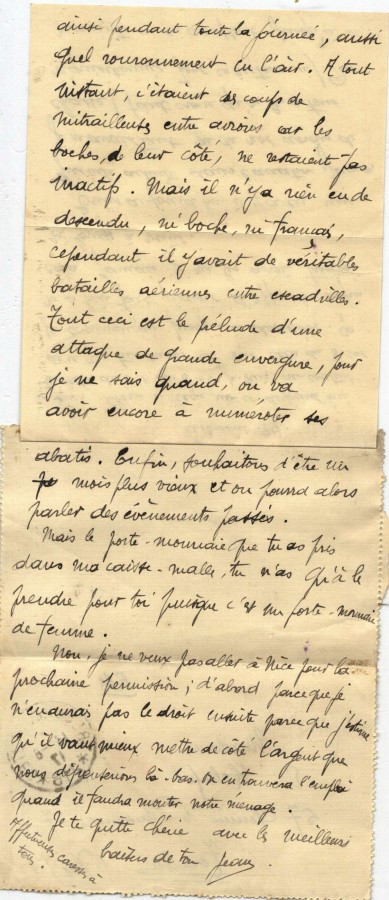 ainsi pendant toute la journée, aussi
quel ronronnement en l'air. A tout
instant, c'étaient des coups de
mitrailleuses entre avions car les
boches, de leur côté, ne restaient pas
inactifs. Mais il n'y a rien eu de
descendu, ni boche, ni français,
cependant il y avait de véritables
batailles aériennes entre escadrilles.
Tout ceci est le prélude d'une
attaque de grande envergure, pour
je ne sais quand, on va
avoir encore à numéroter ses
abatis. Enfin, souhaitons d'être un
mois plus vieux et on pourra alors
parler des évènements passés.
Mais le porte-monnaie que tu as pris
dans ma caisse-malle, tu n'as qu'à le
prendre pour toi puisque c'est un porte-monnaie
de femme.
Non, je ne veux pas aller à Nice pour la
prochaine permission ; d'abord parce que je
n'en aurais pas le droit ensuite parce que j'estime
qu'il vaut mieux mettre de côté l'argent que
nous dépenserions là-bas. On en trouvera l'emploi
quand il faudra monter notre ménage.
Je te quitte chérie avec les meilleurs
baisers de ton Jean
Affectueuses caresses à
tous.